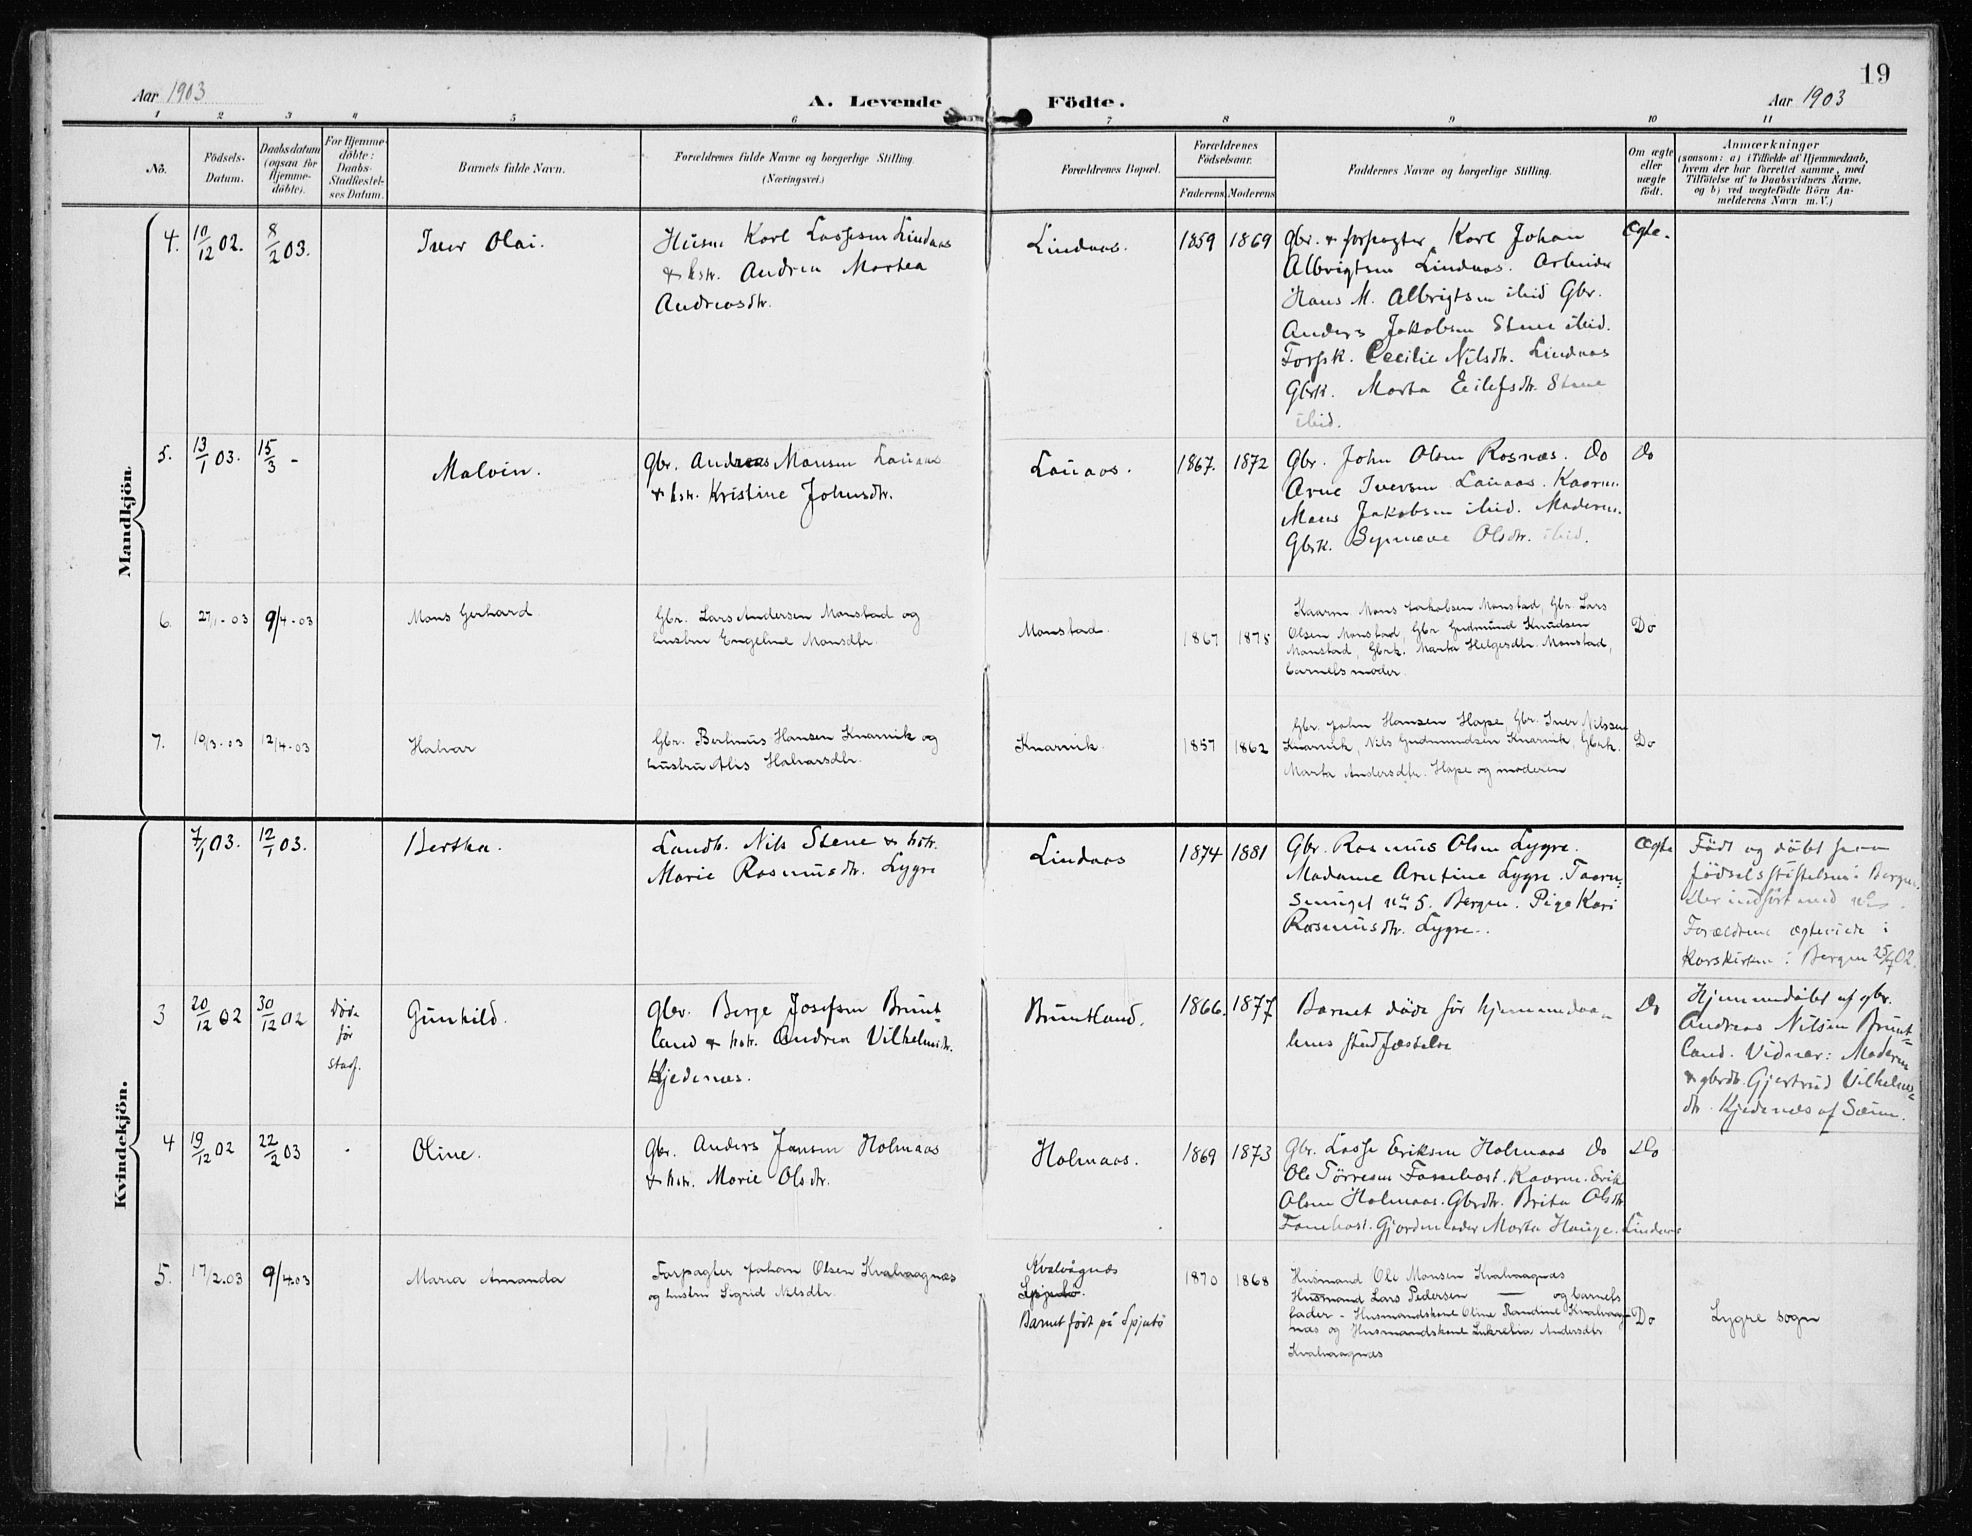 19
Aar 1903
A. Levende Födte.
Aar 1903
1 2 3 4 5 6 7 8 9 10 11
No.
Födsels-
Datum.
Daabsdatum
(ogsaa for
Hjemme-
döbte).
For Hjemme-
döbte:
Daabs-
Stadfæstel-
ses Datum.
Barnets fulde Navn.
Forældrenes fulde Navne og borgerlige Stilling.
(Næringsvei.)
Forældrenes Bopæl.
Forældrenes
Födselsaar.
Faderens Moderens
Faddernes Navne og borgerlige Stilling.
Om ægte
eller
uægte
født.
Anmærkninger
(saasom: a) i Tilfælde af Hjemmedaab,
hvem der har forrettet samme, med
Tilföielse af to Daabsvidners Navne,
og b) ved uægtefödte Börn An-
melderens Navn m. V.)
Mandkjön.
4. 10/12 02. 8/2 03.
Iver Olai.
Husm Karl Lassesen Lindaas
& hstr. Andrea Martea
Andreasdtr.
Lindaas.
1859 1869
Gbr. & forpagter Karl Johan
Albrigtsen Lindaas. Arbeider
Hans M. Albrigtsen ibid Gbr.
Anders Jakobsen Stene ibid.
Forpk. Cecilie Nilsdtr. Lindaas
Gbrk. Marta Eilefsdtr. Stene
ibid.
Ægte.
5. 13/1 03. 15/3 -
Malvin.
Gbr. Andreas Monsen Lauaas
& hstr. Kristine Johnsdtr.
Lauaas.
1867. 1872
Gbr. John Olsen Rosnæs. Do
Arne Iversen Lauaas. Kaarm.
Mons Jakobsen ibid. Moderen.
Gbrk. Synneve Olsdtr. ibid.
Do
6. 27/1-03 9/4-03
Mons Gerhard
Gbr. Lars Andersen Monstad og
hustru Engeline Monsdtr.
Monstad.
1867 1878
Kaarm Mons Jakobsen Monstad, Gbr. Lars
Olsen Monstad, Gbr Gudmund Knudsen
Monstad, Gbrk. Marta Helgesdtr. Monstad,
barnets moder.
Do
7. 10/3-03 12/4-03
Halvar
Gbr. Berhnus Hansen Knarvik og
hustru Alis Halvarsdtr.
Knarvik.
1857 1862
Gbr. John Hansen Hope, Gbr. Iver Nilssen
Knarvik, Nils Gudmundsen Knarvik, Gbrk.
Marta Andersdtr. Hope og moderen
Do
Kvindekjön.
7/1 03. 12/1 03.
Bertha.
Landh. Nils Stene & hstr.
Marie Rasmusdtr. Lygre
Lindaas
1874 1881
Gbr. Rasmus Olsen Lygre.
Madame Arntine Lygre. Taarn-
smuget no 5. Bergen. Pige Kari
Rasmusdtr. Lygre.
Ægte
Födt og döbt paa
födselsstiftelsen i Bergen.
Forældrene ægteviede i
Korskirken i Bergen 25/7 02.
3 20/12 02 30/12 02
Döde
før
stadf.
Gunhild.
Gbr. Berge Josefsen Brunt-
land & hstr. Andrea Vilhelmsdtr.
Kjedenæs.
Bruntland.
1866. 1877
Barnet döde för hjemmedaa-
bens stadfæstelse
Do
Hjemmedöbt af gbr.
Andreas Nilsen Brunt-
land. Vidner: Moderen
& gbrdtr. Gjertrud Vilhelms-
dtr. Kjedenæs af Sæim.
4 19/12 02 22/2 03
Oline.
Gbr. Anders Jansen Holmaas
& hstr. Marie Olsdtr.
Holmaas.
1869 1873
Gbr. Lasse Eriksen Holmaas Do
Ole Törresen Fannebost. Kaarm. Erik
Olsen Holmaas. Gbrdtr. Brita Olsdtr
Fannebost. Gjordemoder Marta Hauge. Lindaas
Do
5. 17/2.03 9/4.03
Maria Amanda
Forpagter Johan Olsen Kvalvaagnæs
og hustru Sigrid Nilsdtr.
Kvalvågnæs
Spjutö.
Barnet födt på Spjutö
1870 1868
Husmand Ole Monsen Kvalvaagnæs
Husmand Lars Pedersen — og barnets
fader - Husmandskone Oline Randine Kvalvaag-
næs og Husmandskone Lukretia Andersdtr
Kvalvaagnæs
Do
Lygre sogn